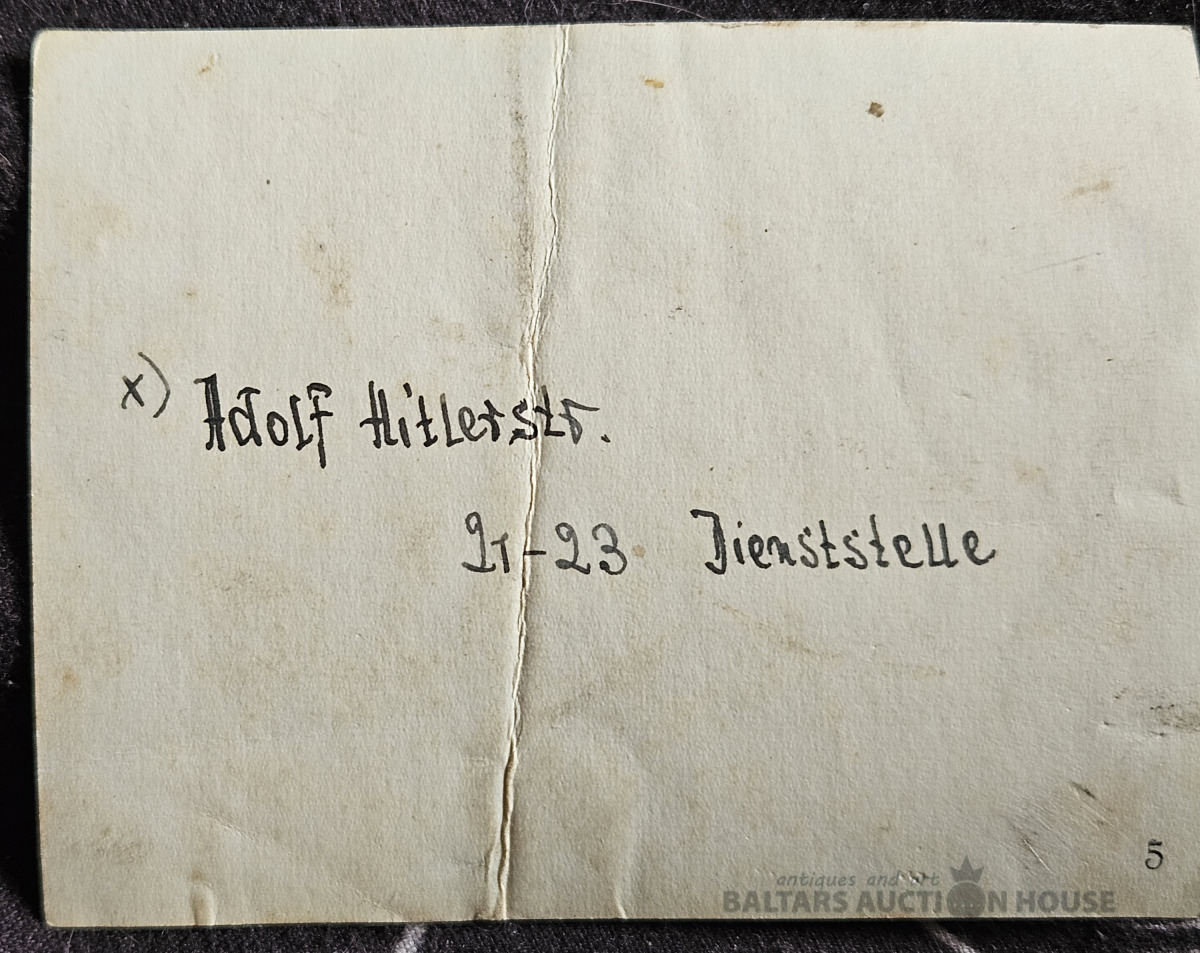 x) Adolf Hitlerstr.
21-23 Dienststelle
5
antiques and art
BALTARS AUCTION HOUSE